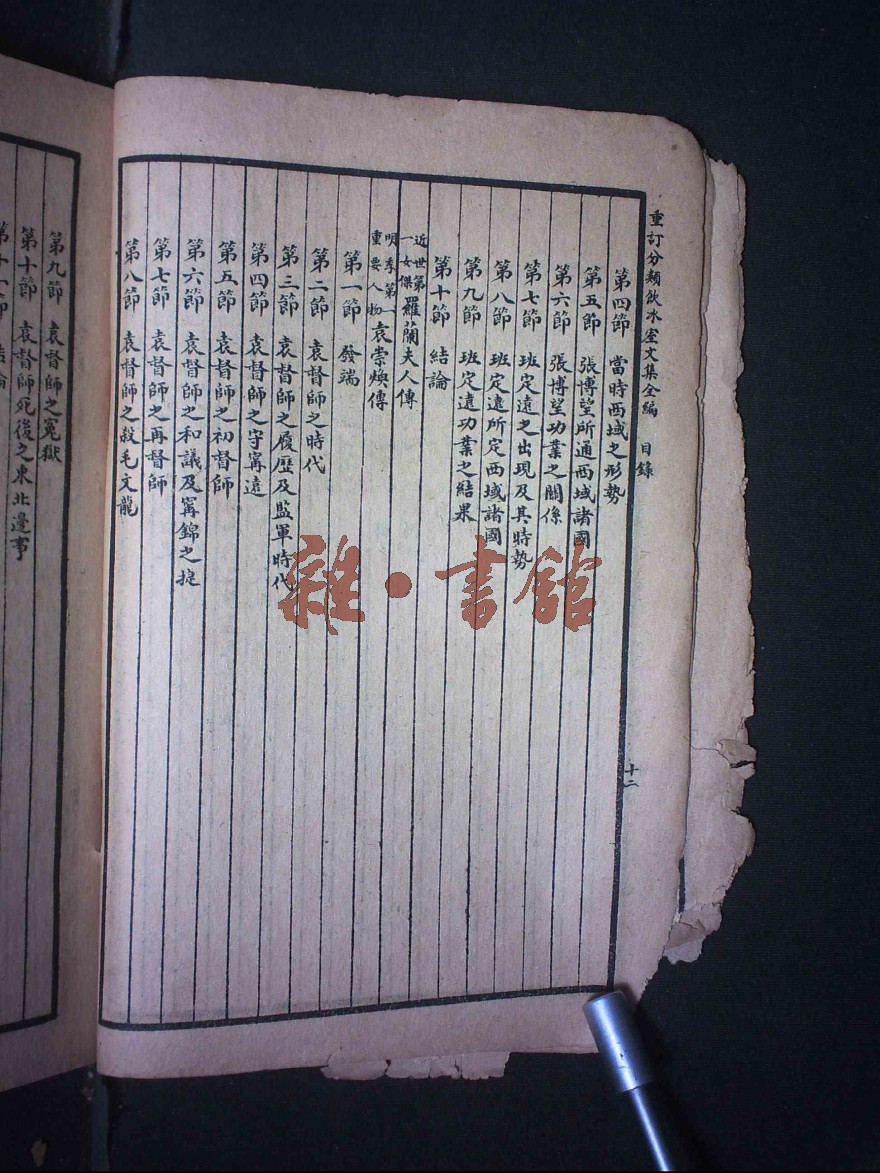 重訂分類飲冰室文集全編 目錄
十二
第四節 當時西域之形勢
第五節 張博望所通西域諸國
第六節 張博望功業之關係
第七節 班定遠之出現及其時勢
第八節 班定遠所定西域諸國
第九節 班定遠功業之結果
第十節 結論
近世第一女傑羅蘭夫人傳
明季第一重要人物袁崇煥傳
第一節 發端
第二節 袁督師之時代
第三節 袁督師之履歷及監軍時代
第四節 袁督師之守甯遠
第五節 袁督師之初督師
第六節 袁督師之和議及甯錦之捷
第七節 袁督師之再督師
第八節 袁督師之殺毛文龍
第九節 袁督師之冤獄
第十節 袁督師死後之東北邊事
第十一節 結論
雜·書館